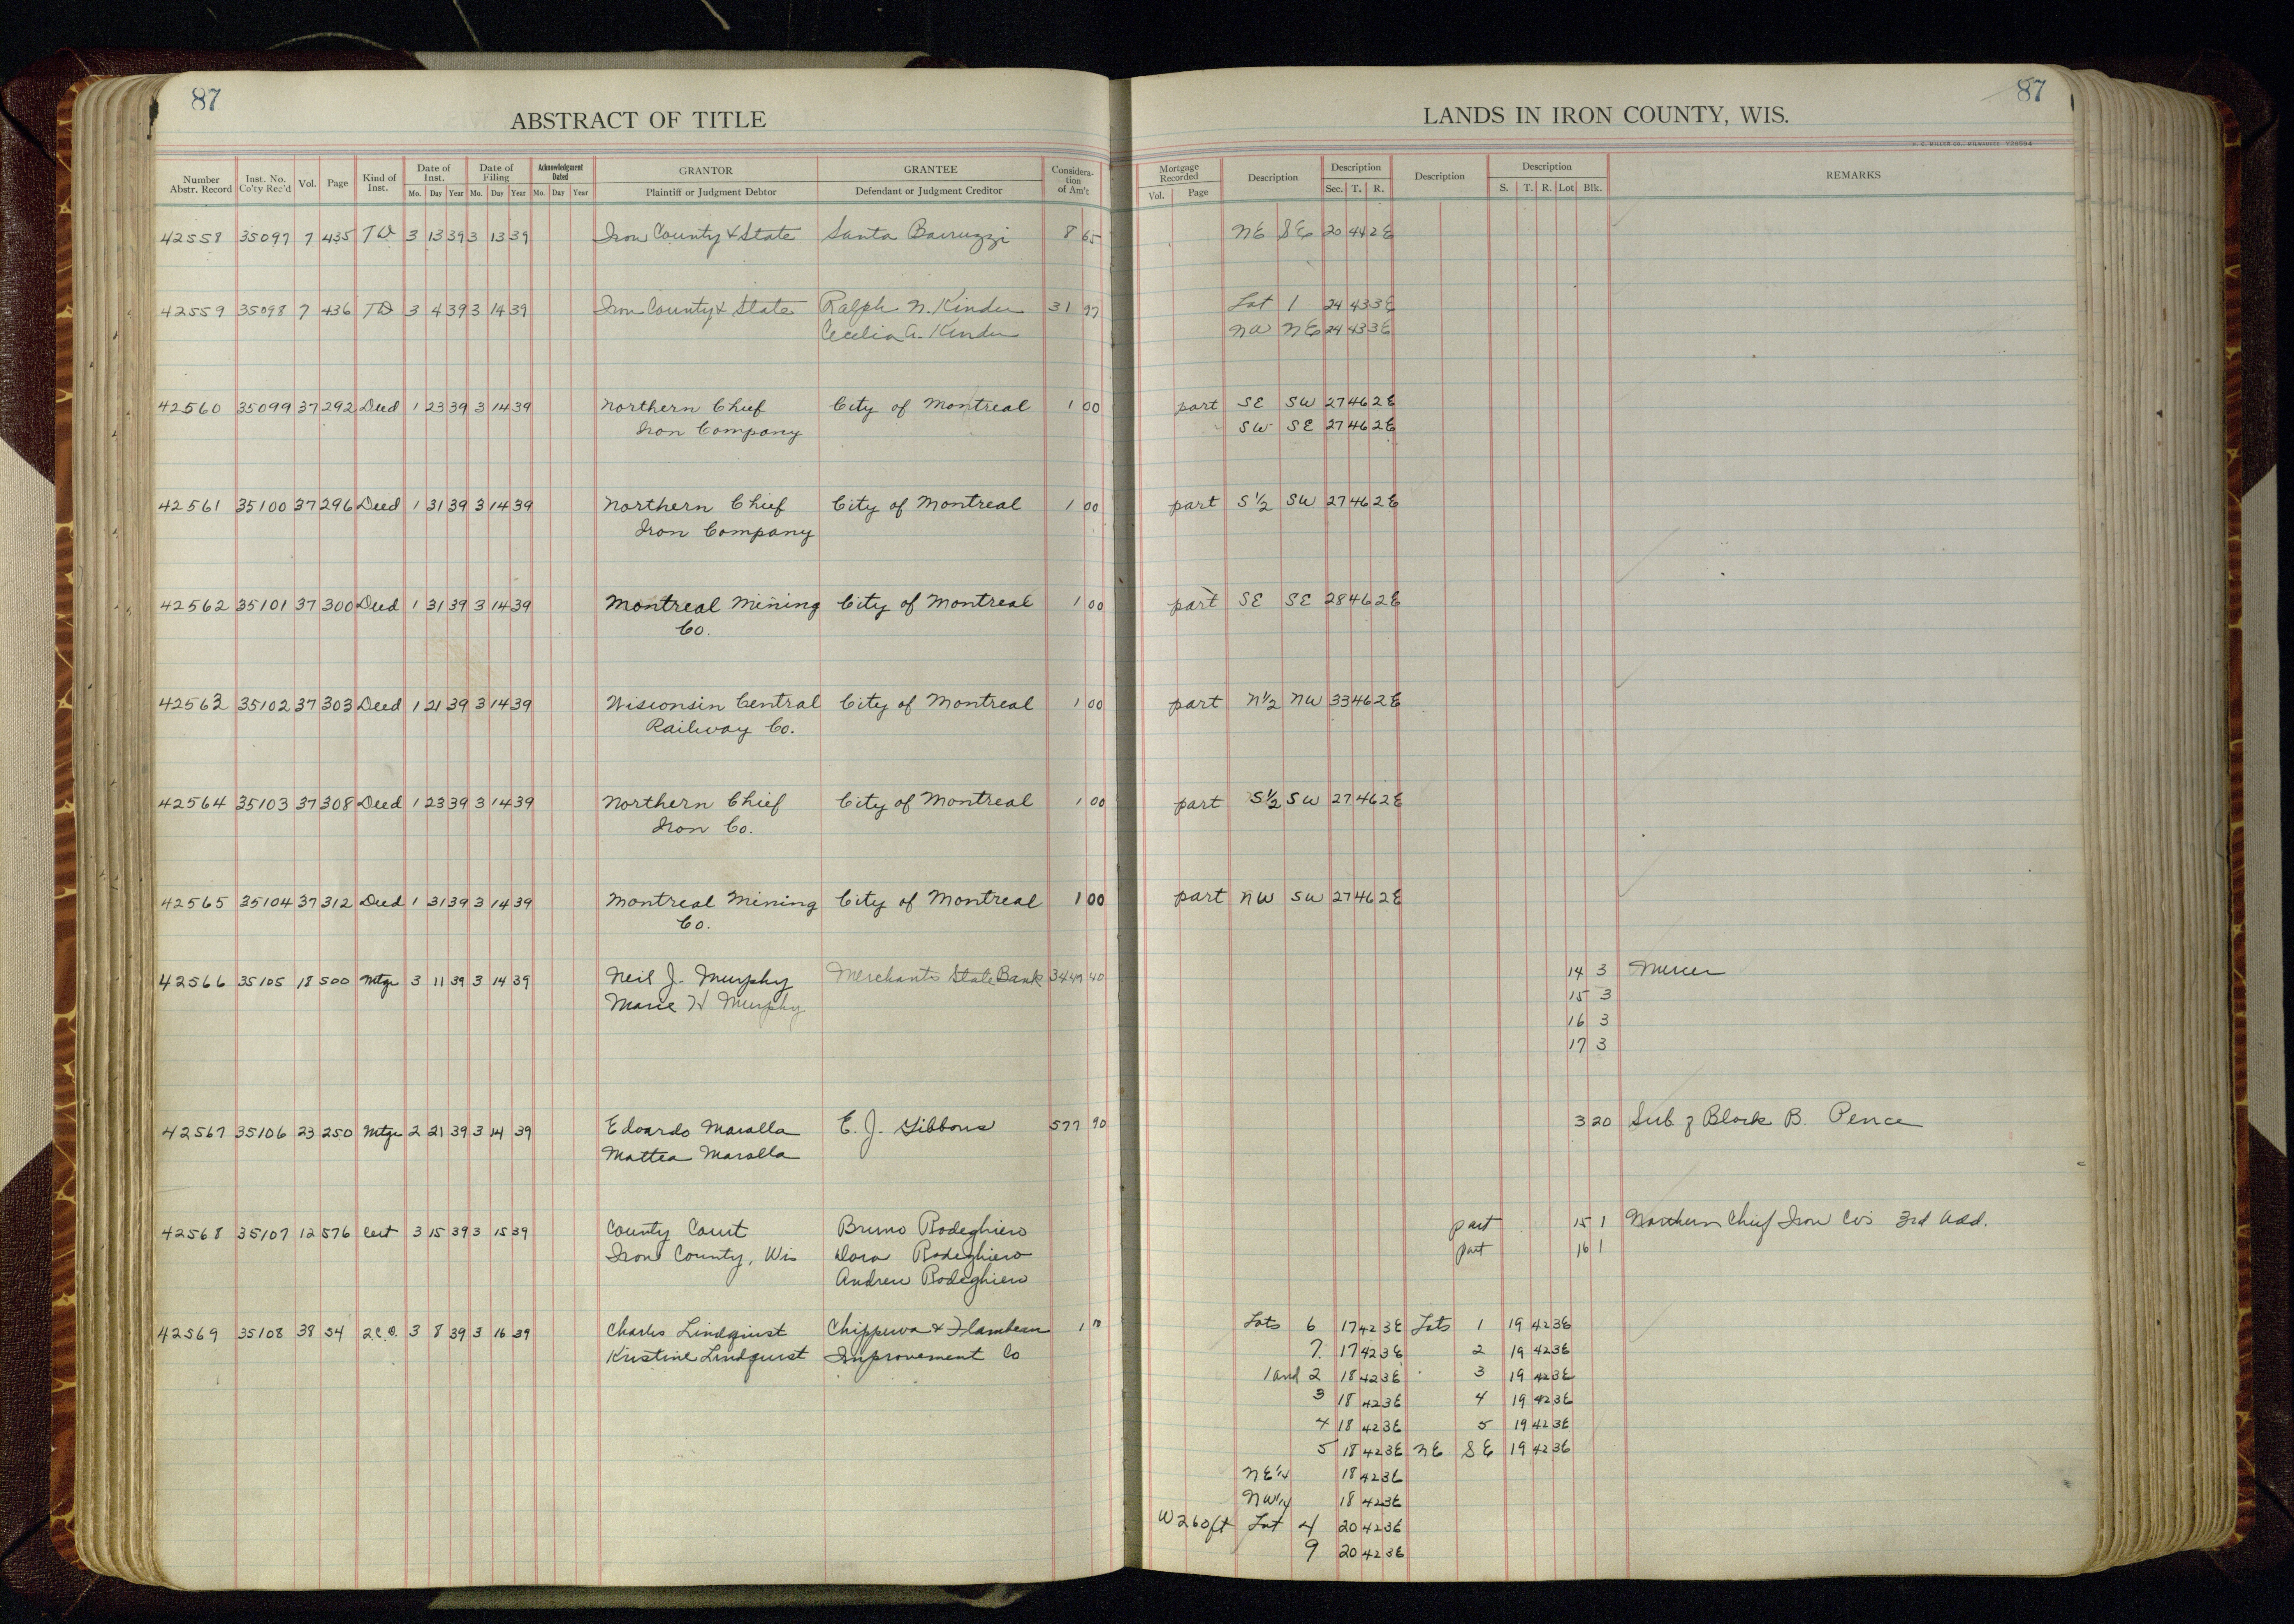 87
ABSTRACT OF TITLE
Number Abstr. Record | Inst. No. Co'ty Rec'd | Vol. | Page | Kind of Inst. | Date of Inst. Mo. Day Year | Date of Filing Mo. Day Year | Acknowledgment Dated Mo. Day Year | GRANTOR Plaintiff or Judgment Debtor | GRANTEE Defendant or Judgment Creditor | Considera-tion of Am't
42558 35097 7 435 TD 3 13 39 3 13 39 Iron County & State Santa Barruzzi 8 65
42559 35098 7 436 TD 3 4 39 3 14 39 Iron County & State Ralph N. Kinder 31 97
Cecelia A. Kinder
42560 35099 37 292 Deed 1 23 39 3 14 39 Northern Chief City of Montreal 1 00
Iron Company
42561 35100 37 296 Deed 1 31 39 3 14 39 Northern Chief City of Montreal 1 00
Iron Company
42562 35101 37 300 Deed 1 31 39 3 14 39 Montreal Mining City of Montreal 1 00
Co.
42563 35102 37 303 Deed 1 21 39 3 14 39 Wisconsin Central City of Montreal 1 00
Railway Co.
42564 35103 37 308 Deed 1 23 39 3 14 39 Northern Chief City of Montreal 1 00
Iron Co.
42565 35104 37 312 Deed 1 31 39 3 14 39 Montreal Mining City of Montreal 1 00
Co.
42566 35105 18 500 Mtge 3 11 39 3 14 39 Neil J. Murphy Merchants State Bank 3449 40
Marie H Murphy
42567 35106 23 250 Mtge 2 21 39 3 14 39 Edoardo Maralla E. J. Gibbons 577 90
Mattea Maralla
42568 35107 12 576 Cert 3 15 39 3 15 39 County Court Bruno Rodeghiero
Iron County, Wis Dora Rodeghiero
Andrew Rodeghiero
42569 35108 38 54 2.C.D. 3 8 39 3 16 39 Charles Lindquist Chippewa & Flambeau 1
Kristine Lindquist Improvement Co
87
LANDS IN IRON COUNTY, WIS.
H. C. MILLER CO., MILWAUKEE
Mortgage Recorded Vol. Page | Description | Description Sec. T. R. | Description | Description S. T. R. Lot Blk. | REMARKS
NE SE 20 44 2E
Lot 1 24 43 3E
NW NE 24 43 3E
part SE SW 27 46 2E
SW SE 27 46 2E
part S½ SW 27 46 2E
part SE SE 28 46 2E
part N½ NW 33 46 2E
part S½ SW 27 46 2E
part NW SW 27 46 2E
14 3 Mercer
15 3
16 3
17 3
3 20 Sub of Block B. Pence
part 15 1 Northern Chief Iron Co's 3rd Add.
part 16 1
Lots 6 17 42 3E Lots 1 19 42 3E
7 17 42 3E 2 19 42 3E
1 and 2 18 42 3E 3 19 42 3E
3 18 42 3E 4 19 42 3E
4 18 42 3E 5 19 42 3E
5 18 42 3E NE SE 19 42 3E
NE¼ 18 42 3E
NW¼ 18 42 3E
W 260 ft Lot 4 20 42 3E
9 20 42 3E